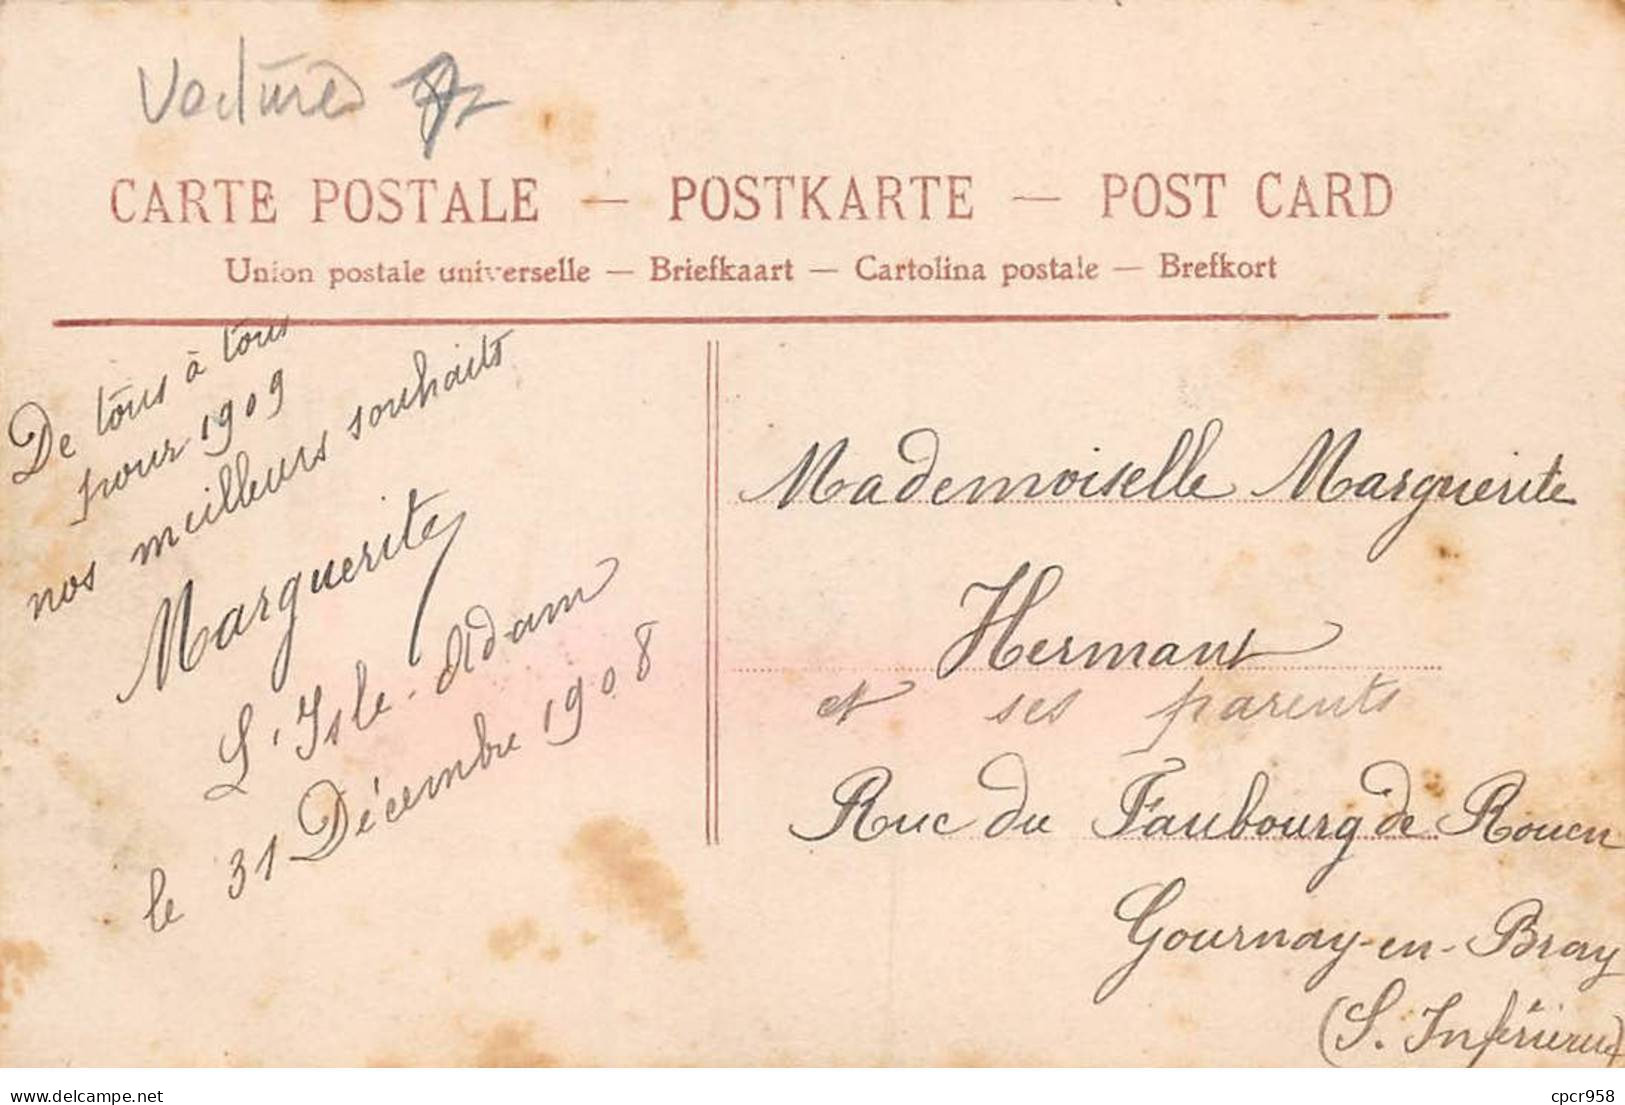 Voitures
CARTE POSTALE — POSTKARTE — POST CARD
Union postale universelle — Briefkaart — Cartolina postale — Brefkort
De tous à tous
pour 1909
nos meilleurs souhaits
Marguerite
L'Isle-Adam
le 31 Décembre 1908
Mademoiselle Marguerite
Hermant
et ses parents
Rue du Faubourg de Rouen
Gournay-en-Bray
(S. Inférieure)
delcampe.net
cpcr958